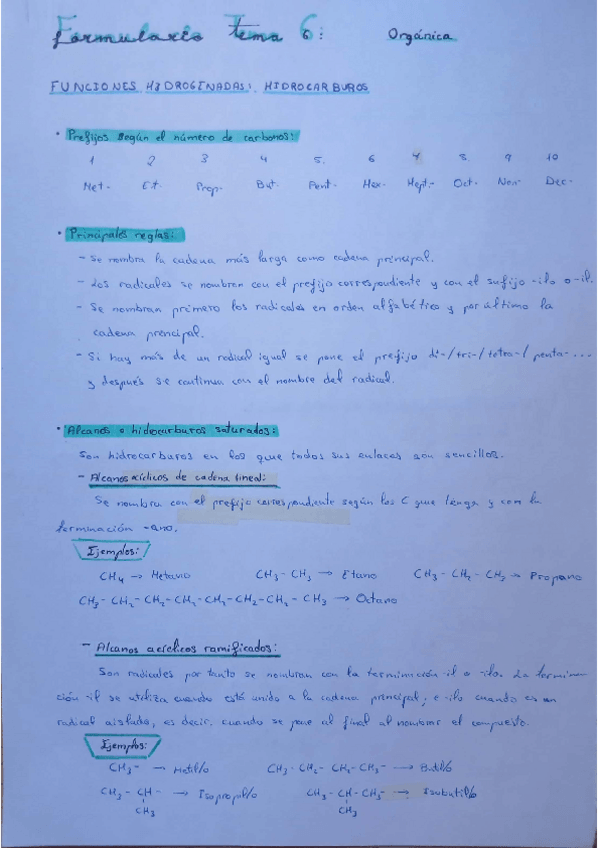 Formulario Tema 6: Orgánica
FUNCIONES HIDROGENADAS: HIDROCARBUROS
· Prefijos según el número de carbonos:
1 2 3 4 5. 6 7 8. 9 10
Met- Et- Prop- But- Pent- Hex- Hept- Oct- Non- Dec-
· Principales reglas:
- Se nombra la cadena más larga como cadena principal.
- Los radicales se nombran con el prefijo correspondiente y con el sufijo -ilo o -il.
- Se nombran primero los radicales en orden alfabético y por último la
cadena principal.
- Si hay más de un radical igual se pone el prefijo di-/tri-/tetra-/penta-...
y después se continua con el nombre del radical.
· Alcanos o hidrocarburos saturados:
Son hidrocarburos en los que todos sus enlaces son sencillos.
- Alcanos acíclicos de cadena lineal:
Se nombra con el prefijo correspondiente según los C que tenga y con la
terminación -ano.
Ejemplos:
CH4 → Metano CH3 - CH3 → Etano CH3 - CH2 - CH3 → Propano
CH3 - CH2 - CH2 - CH2 - CH2 - CH2 - CH2 - CH3 → Octano
- Alcanos acíclicos ramificados:
Son radicales por tanto se nombran con la terminación il o -ilo. La termina-
ción -il se utiliza cuando está unido a la cadena principal; e -ilo cuando es un
radical aislado, es decir, cuando se pone al final al nombrar el compuesto.
Ejemplos:
CH3 - → Metil/o CH3 - CH2 - CH2 - CH2 - → Butil/o
CH3 - CH - → Isopropil/o CH3 - CH - CH2 - → Isobutil/o
CH3 CH3